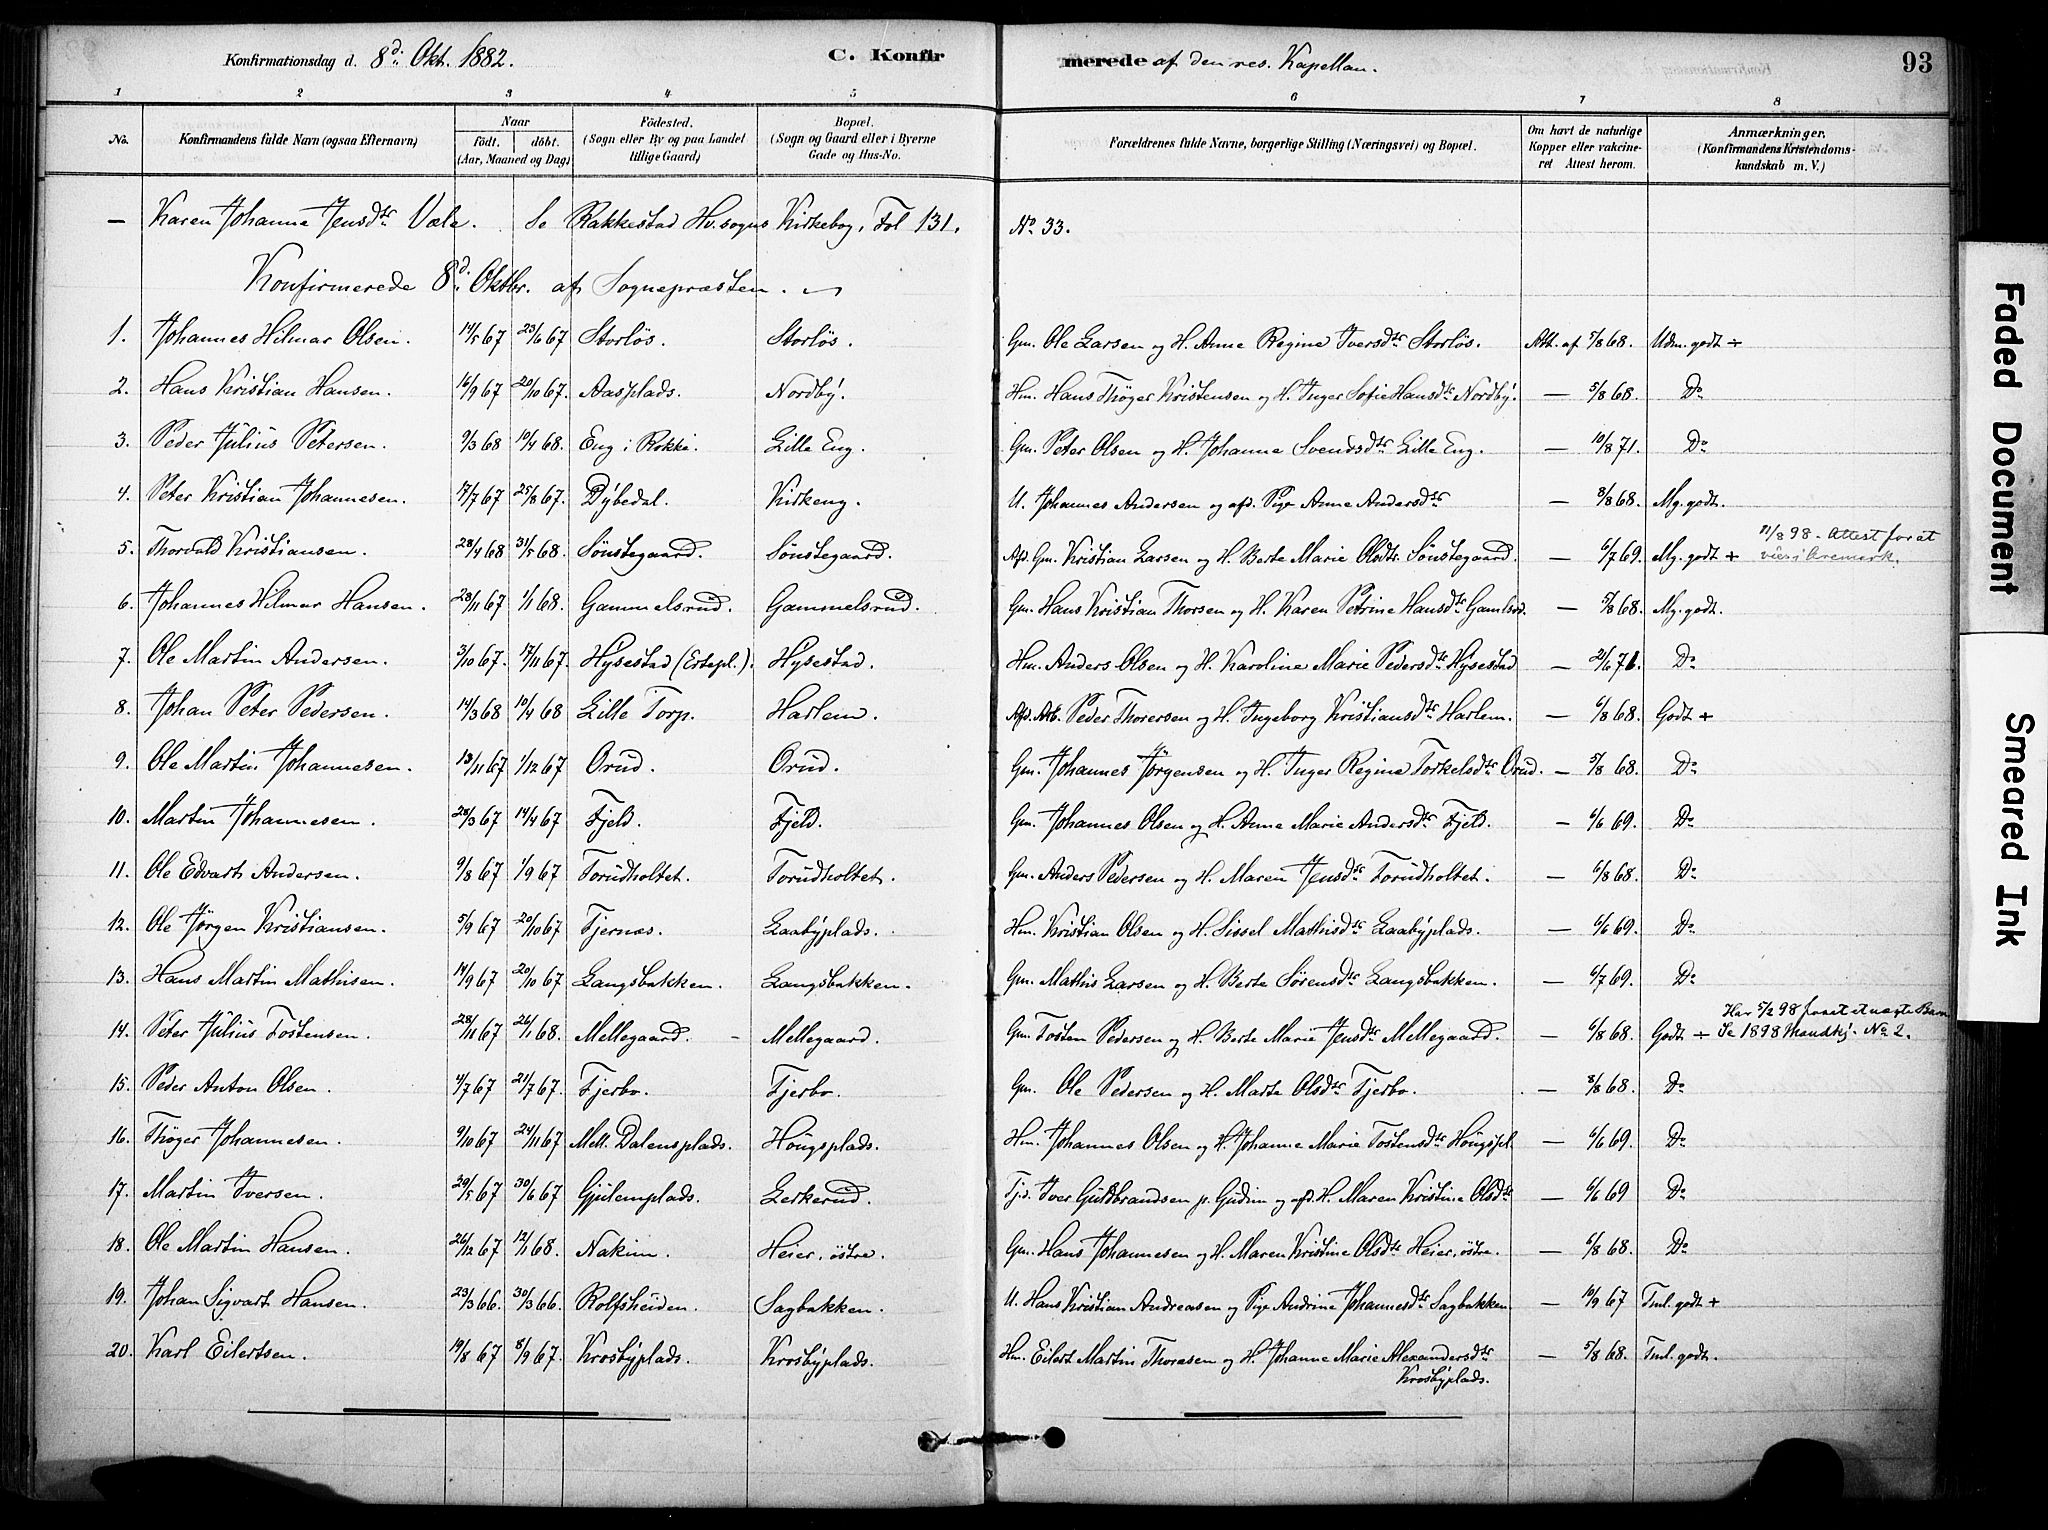 Konfirmationsdag d. 8d: Okt. 1882. C. Konfirmerede af den res. Kapellan. 93
1 2 3 4 5 6 7 8
No. Konfirmandens fulde Navn (ogsaa Efternavn) Naar födt. döbt. (Aar, Maaned og Dag) Födested. (Sogn eller By og paa Landet tillige Gaard) Bopæl. (Sogn og Gaard eller i Byerne Gade og Hus-No. Forældrenes fulde Navne, borgerlige Stilling (Næringsvei) og Bopæl. Om havt de naturlige Kopper eller vakcineret Attest herom. Anmærkninger. (Konfirmandens Kristendomskundskab m. V.)
— Karen Johanne Jensdtr Vale. Se Rakkestad Hv. sogns Kirkebog, Fol 131. No 33.
Konfirmerede 8d: Oktbr. af Sognepræsten.
1. Johannes Hilmar Olsen. 14/5 67 23/6 67 Storlös. Storlös. Gm. Ole Larsen og H. Anne Regine Iversdtr Storlös. Att. af 5/8 68. Udm. godt ÷
2. Hans Kristian Hansen. 16/9 67 20/10 67. Aasplads. Nordby. Hm. Hans Thöger Kristensen og H. Inger Sofie Hansdtr Nordby. — 5/8 68. Do
3. Peder Julius Petersen. 9/3 68 10/4 68. Eng i Rokke. Lille Eng. Gm. Peter Olsen og H. Johanne Svendsdtr Lille Eng. — 10/8 71. Do
4. Peter Kristian Johannesen. 17/7 67 25/8 67. Dybedal. Kirkeng. U. Johannes Andersen og afd. Pige Anne Andersdtr — 8/8 68. Mg. godt.
5. Thorvald Kristiansen. 28/4 68 31/5 68. Sönstegaard. Sönstegaard. Afd. Gm. Kristian Larsen og H. Berte Marie Olsdtr. Sönstegaard. — 6/7 69. Mg. godt + 11/8 98. Attest for at vies i Aremark.
6. Johannes Hilmar Hansen. 23/11 67 1/1 68. Gammelsrud. Gammelsrud. Gm. Hans Kristian Thorsen og H. Karen Petrine Hansdtr Gamlsrd. — 5/8 68. Mg. godt.
7. Ole Martin Andersen. 3/10 67. 17/11 67. Hysestad (Ertepl.). Hysestad. Hm. Anders Olsen og H. Karoline Marie Pedersdtr Hysestad — 21/6 71. Do
8. Johan Peter Pedersen. 14/3 68 10/4 68 Lille Torp. Harlem. Afd. Arb. Peder Thorersen og H. Ingeborg Kristiansdtr Harlem. — 6/8 68. Godt +
9. Ole Martin Johannesen. 13/11 67 1/12 67 Orud. Orud. Gm. Johannes Jörgensen og H. Inger Regine Torkelsdtr Orud. — 5/8 68. Do
10. Martin Johannesen. 28/3 67 14/4 67 Fjeld. Fjeld. Gm. Johannes Olsen og H. Anne Marie Andersdtr Fjeld. — 6/6 69. Do
11. Ole Edvart Andersen. 9/8 67 1/9 67 Torudholtet. Torudholtet. Gm. Anders Pedersen og H. Maren Jensdtr Torudholtet. — 6/8 68. Do
12. Ole Jörgen Kristiansen. 5/9 67 20/10 67 Tjernæs. Laabyplads. Hm. Kristian Olsen og H. Sissel Mathisdtr Laabyplads. — 6/6 69. Do
13. Hans Martin Mathisen. 14/9 67 20/10 67 Langsbakken. Langsbakken. Gm. Mathis Larsen og H. Berte Sörensdtr Langsbakken. — 6/7 69. Do
14. Peter Julius Tostensen. 28/11 67 26/1 68. Mellegaard. – Mellegaard. Gm. Tosten Pedersen og H. Berte Marie Jensdtr Mellegaard. — 6/8 68. Godt ÷ Har 5/2 98 faaet et uægte Barn Se 1898 Mandkj. No 2.
15. Peder Anton Olsen. 4/7 67 21/7 67. Fjerbo. Fjerbo. Gm. Ole Pedersen og H. Marte Olsdtr Fjerbo. — 8/8 68. Do
16. Thöger Johannesen. 9/10 67 24/11 67 Mell. Dalensplads. Höugsplads. Hm. Johannes Olsen og H. Johanne Marie Tostensdtr Höugspl. — 6/6 69. Do
17. Martin Iversen. 29/5 67 30/6 67 Gjulemplads. Lerkerud. Tj. Iver Guldbrandsen p. Gudim og afd. H. Maren Kristine Olsdtr — 6/6 69 Do
18. Ole Martin Hansen. 26/12 67 12/1 68. Nakim. Heier, östre. Gm. Hans Johannesen og H. Maren Kristine Olsdtr Heier, östre. — 6/8 68. Do
19. Johan Sigvart Hansen. 23/3 66. 30/3 66. Rolfsheiden. Sagbakken. U. Hans Kristian Andreasen og Pige Andrine Johannesdtr Sagbakken — 10/9 67 Tml. godt +
20. Karl Eilertsen. 19/8 67 8/9 67. Krosbyplads. Krosbyplads. Hm. Eilert Martin Thoresen og H. Johanne Marie Alexandersdtr Krosbyplads. — 5/8 68. Tml. godt.
Faded Document
Smeared Ink